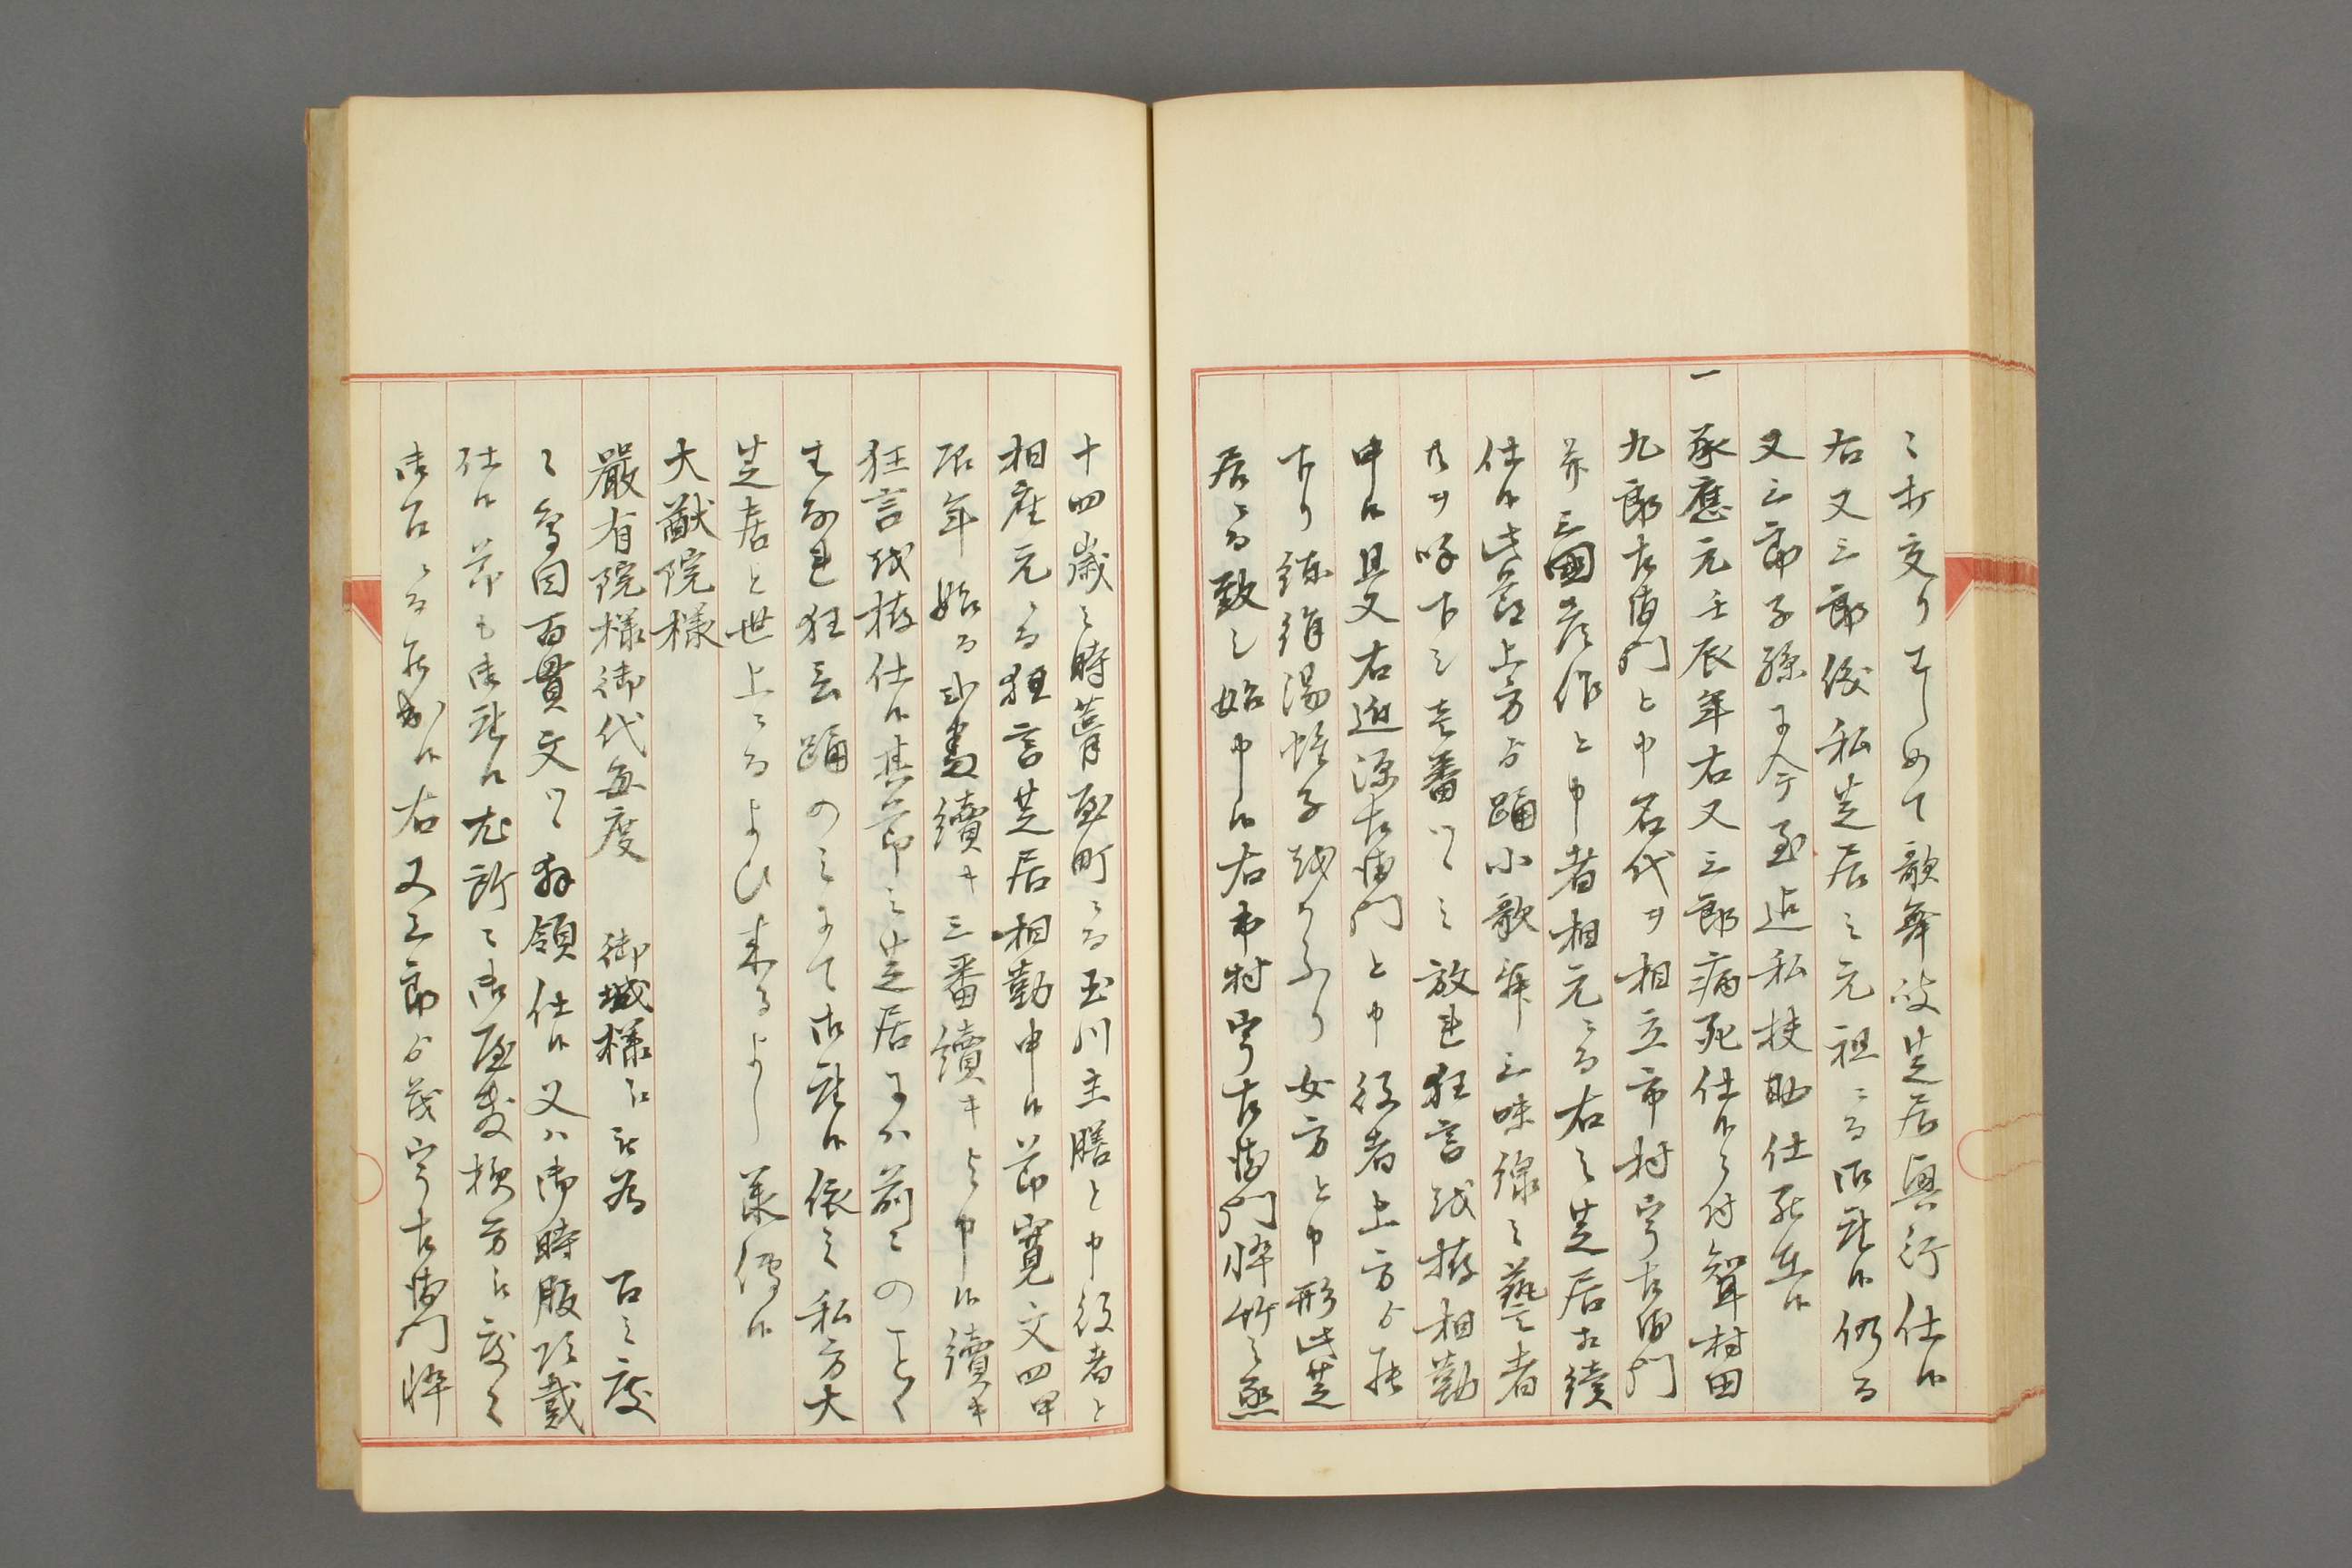 ニ打交りはしめて歌舞妓芝居興行仕候
右又三郎後私芝居之元祖ニ而御座候仍而
又三郎子孫于今至迄私扶助仕罷在候
一承應元壬辰年右又三郎病死仕候ニ付聟村田
九郎右衛門と申名代ヲ相立市村宇右衛門
并三國彦作と申者相元ニ而右之芝居相續
仕候此節上方ゟ踊小歌舞三味線之藝者
共ヲ呼下し壱番ツヽ之放れ狂言越撰相勤
申候且又右近源左衛門と申役者上方ゟ罷
下り女方と申形此芝
居ニ而致し始申候右市村宇左衛門忰竹之丞
十四歳之時葺屋町ニ而玉川主膳と申役者と
相座元ニ而狂言芝居相勤申候節寛文四甲
辰年始而弐番續キ三番續キと申候續キ
狂言越撰仕候其節之芝居ニハ前々のことく
放れ狂言踊のミにて御座候依之私方大
芝居と世上ニ而よひ来るよし承傳候
大猷院様
嚴有院様御代毎度 御城様江被為 召之度
々鳥目百貫文ツヽ拝領仕候又ハ御時服頂戴
仕候節も御座候尤所々御屋敷様方江度々
御召ニ而罷出候右又三郎ゟ茂宇右衛門忰